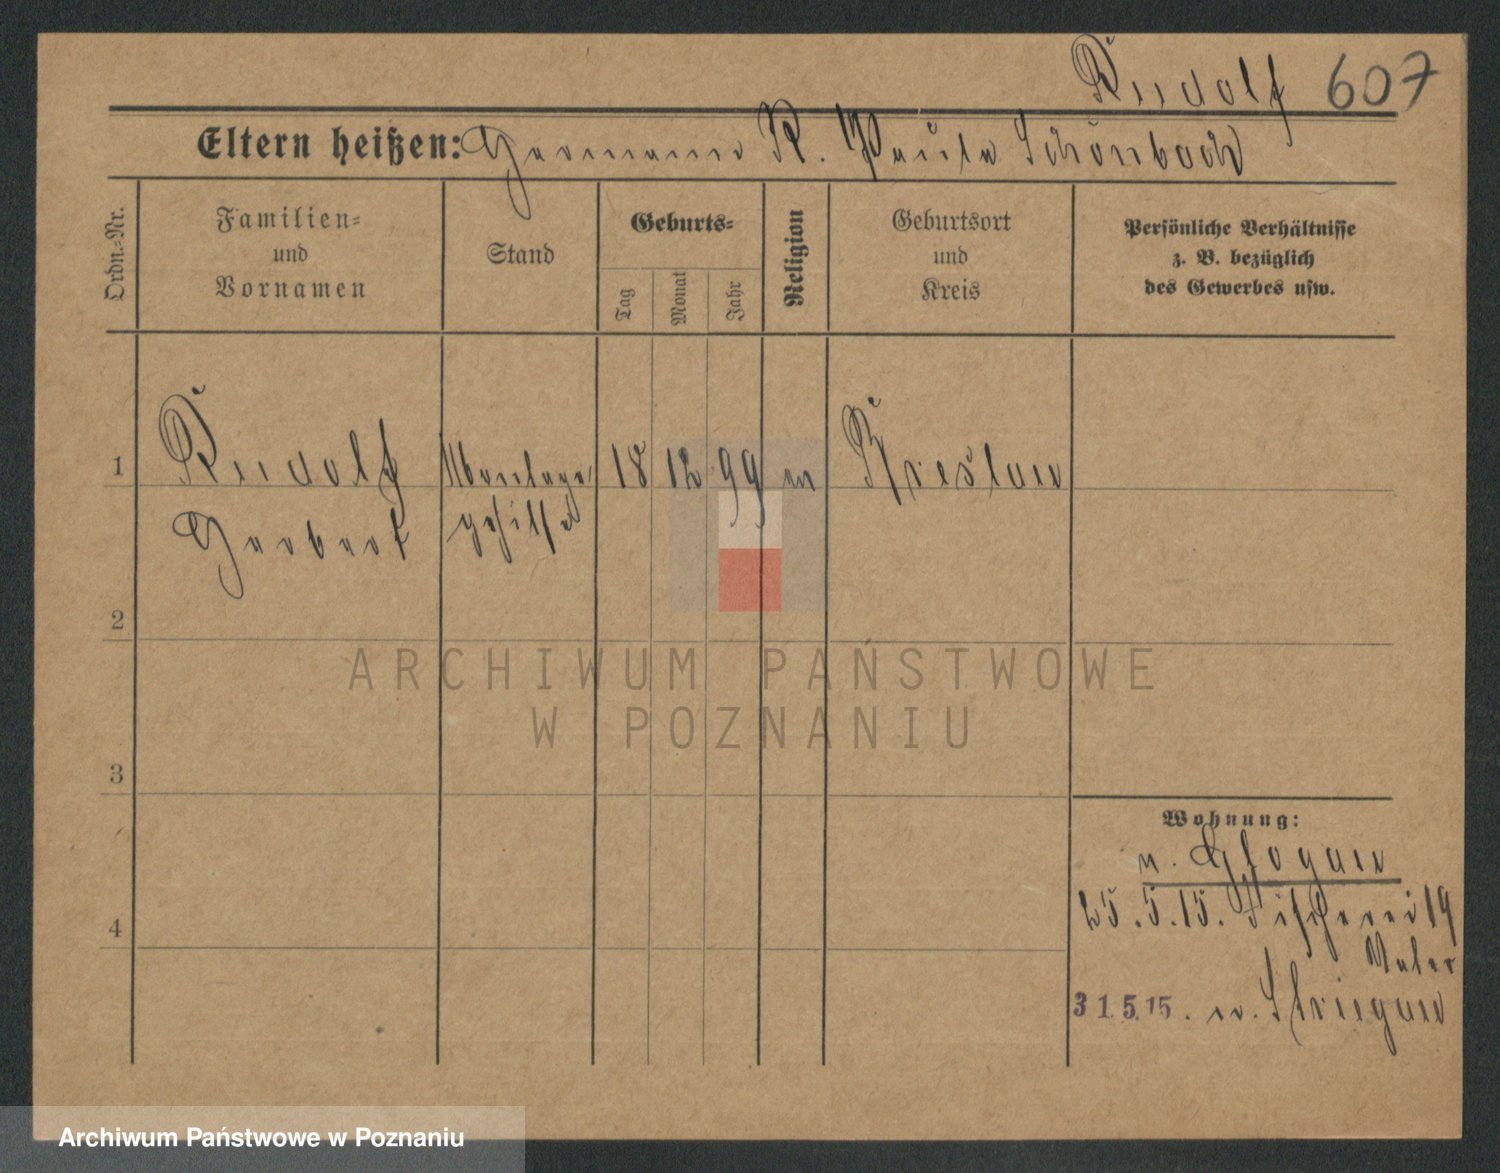 Rudolf 607
Eltern heißen: Hermann R. Paula Schönbach
Ordn.-Nr.
Familien-
und
Vornamen
Stand
Geburts-
Tag
Monat
Jahr
Religion
Geburtsort
und
Kreis
Persönliche Verhältnisse
z. B. bezüglich
des Gewerbes usw.
1
Rudolf Montage 18 12 99 Breslau
Herbert gehilfe
2
ARCHIWUM PAŃSTWOWE
W POZNANIU
3
Wohnung:
v. Glogau
25.5.15. Fischerei 19
Vater
31.5.15. n. Striegau
4
Archiwum Państwowe w Poznaniu